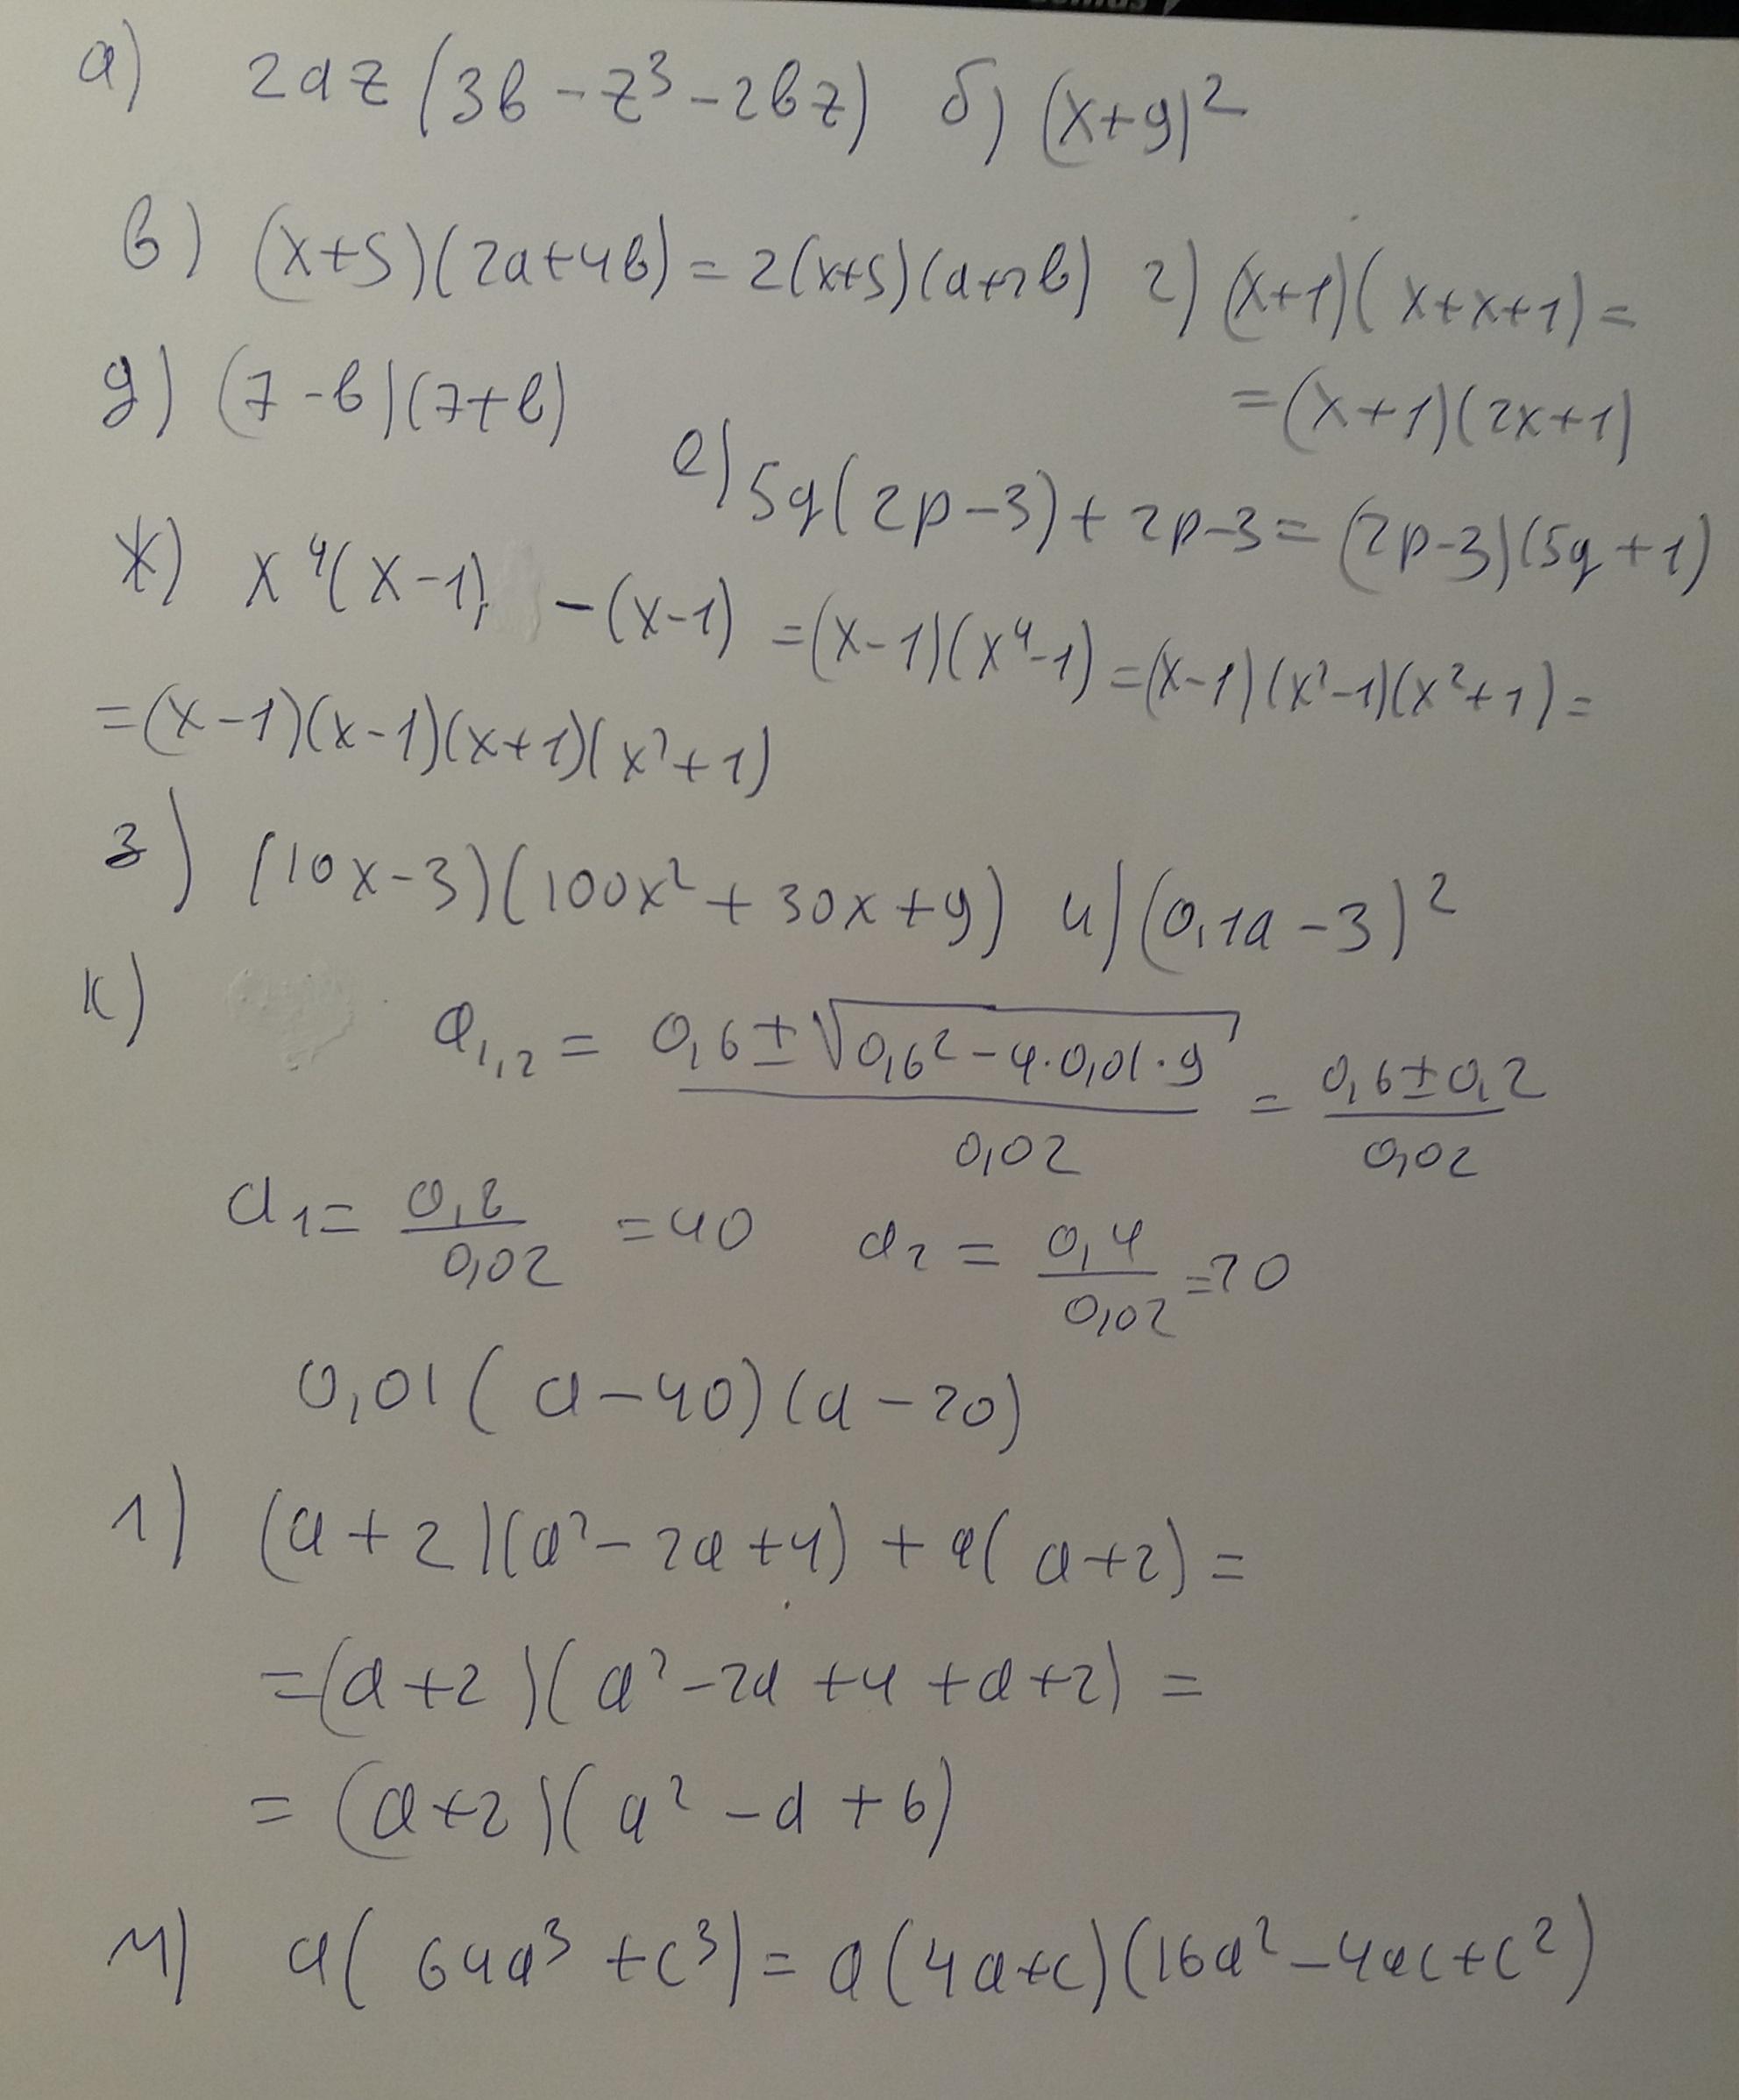 а) 2az(3b-z³-2bz) б) (x+9)²
в) (x+5)(2a+4b)=2(x+5)(a+2b) г) (x+1)(x+x+1)=
=(x+1)(2x+1)
д) (7-b)(7+b)
е) 5q(2p-3)+2p-3=(2p-3)(5q+1)
ж) x⁴(x-1) -(x-1) =(x-1)(x⁴-1)=(x-1)(x²-1)(x²+1)=
=(x-1)(x-1)(x+1)(x²+1)
з) (10x-3)(100x²+30x+9) и) (0,1a-3)²
к) a₁,₂ = (0,6±√(0,6²-4·0,01·9))/0,02 = (0,6±0,2)/0,02
a₁= 0,8/0,02 =40 a₂ = 0,4/0,02 =20
0,01(a-40)(a-20)
л) (a+2)(a²-2a+4)+a(a+2)=
=(a+2)(a²-2a+4+a+2)=
=(a+2)(a²-a+6)
м) a(64a³+c³)=a(4a+c)(16a²-4ac+c²)